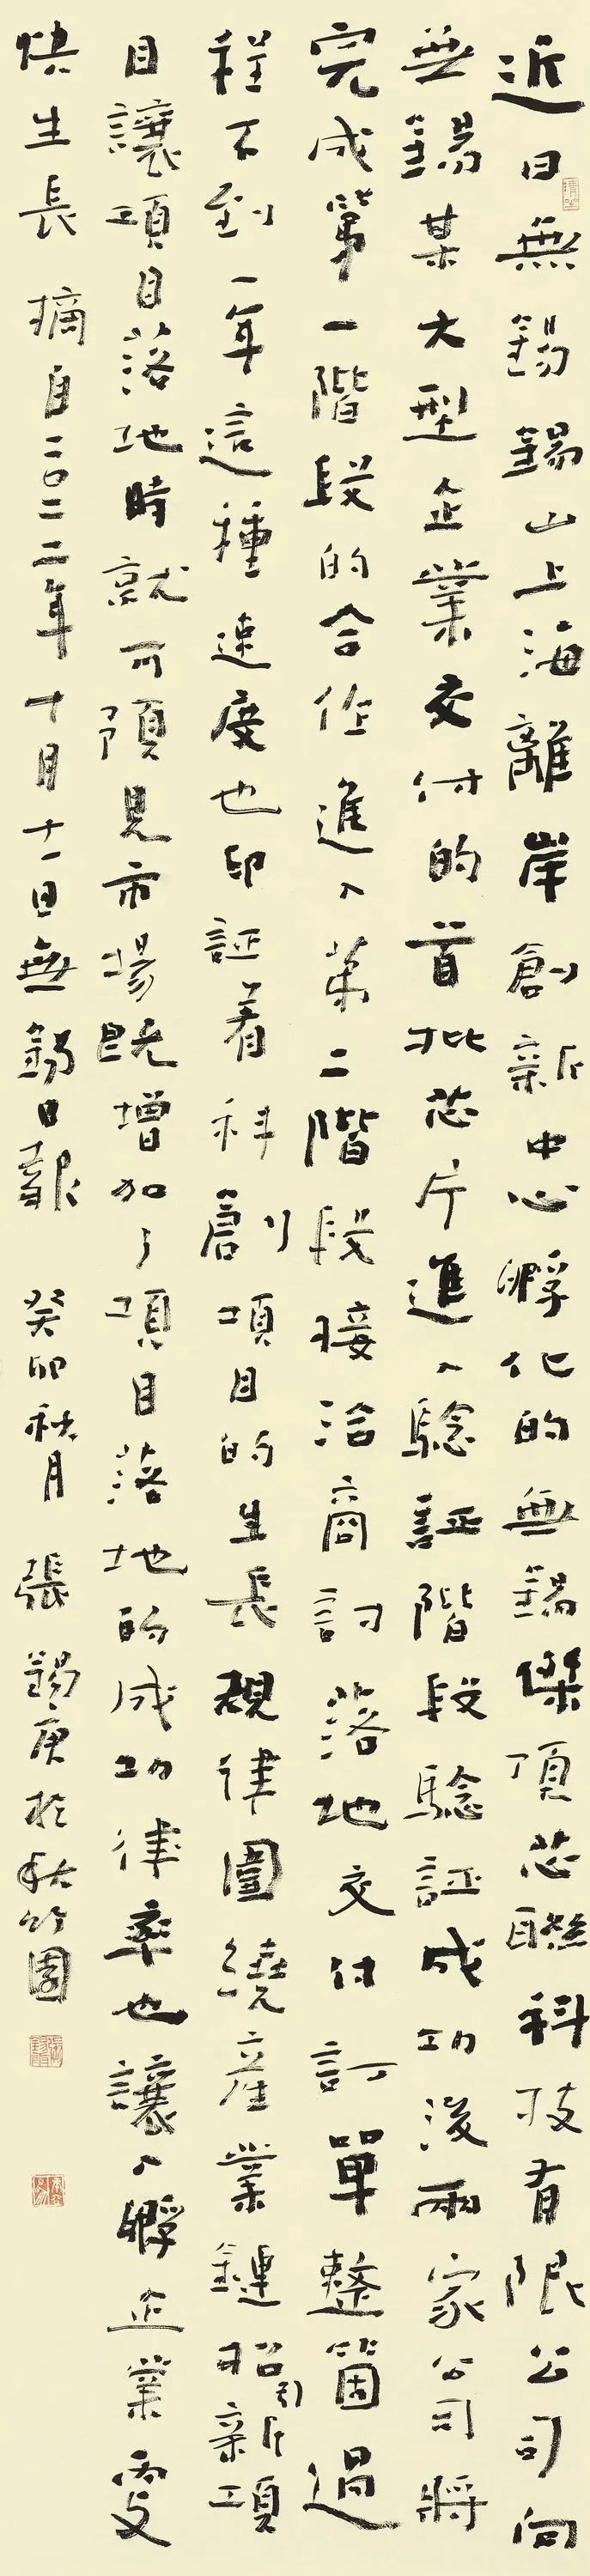 近日無錫錫山上海離岸創新中心孵化的無錫傑頂芯聯科技有限公司向
無錫某大型企業交付的首批芯片進入騐証階段騐証成功後兩家公司將
完成第一階段的合作進入第二階段接洽商討落地交付訂單整箇過
程不到一年這種速度也印証着科創項目的生長規律圍繞產業鏈招引新項
目讓項目落地時就可預見市場既增加了項目落地的成功律率也讓入孵企業更
快生長 摘自二〇二二年十月十一日無錫日報 癸卯秋月 張錫庚於竹園